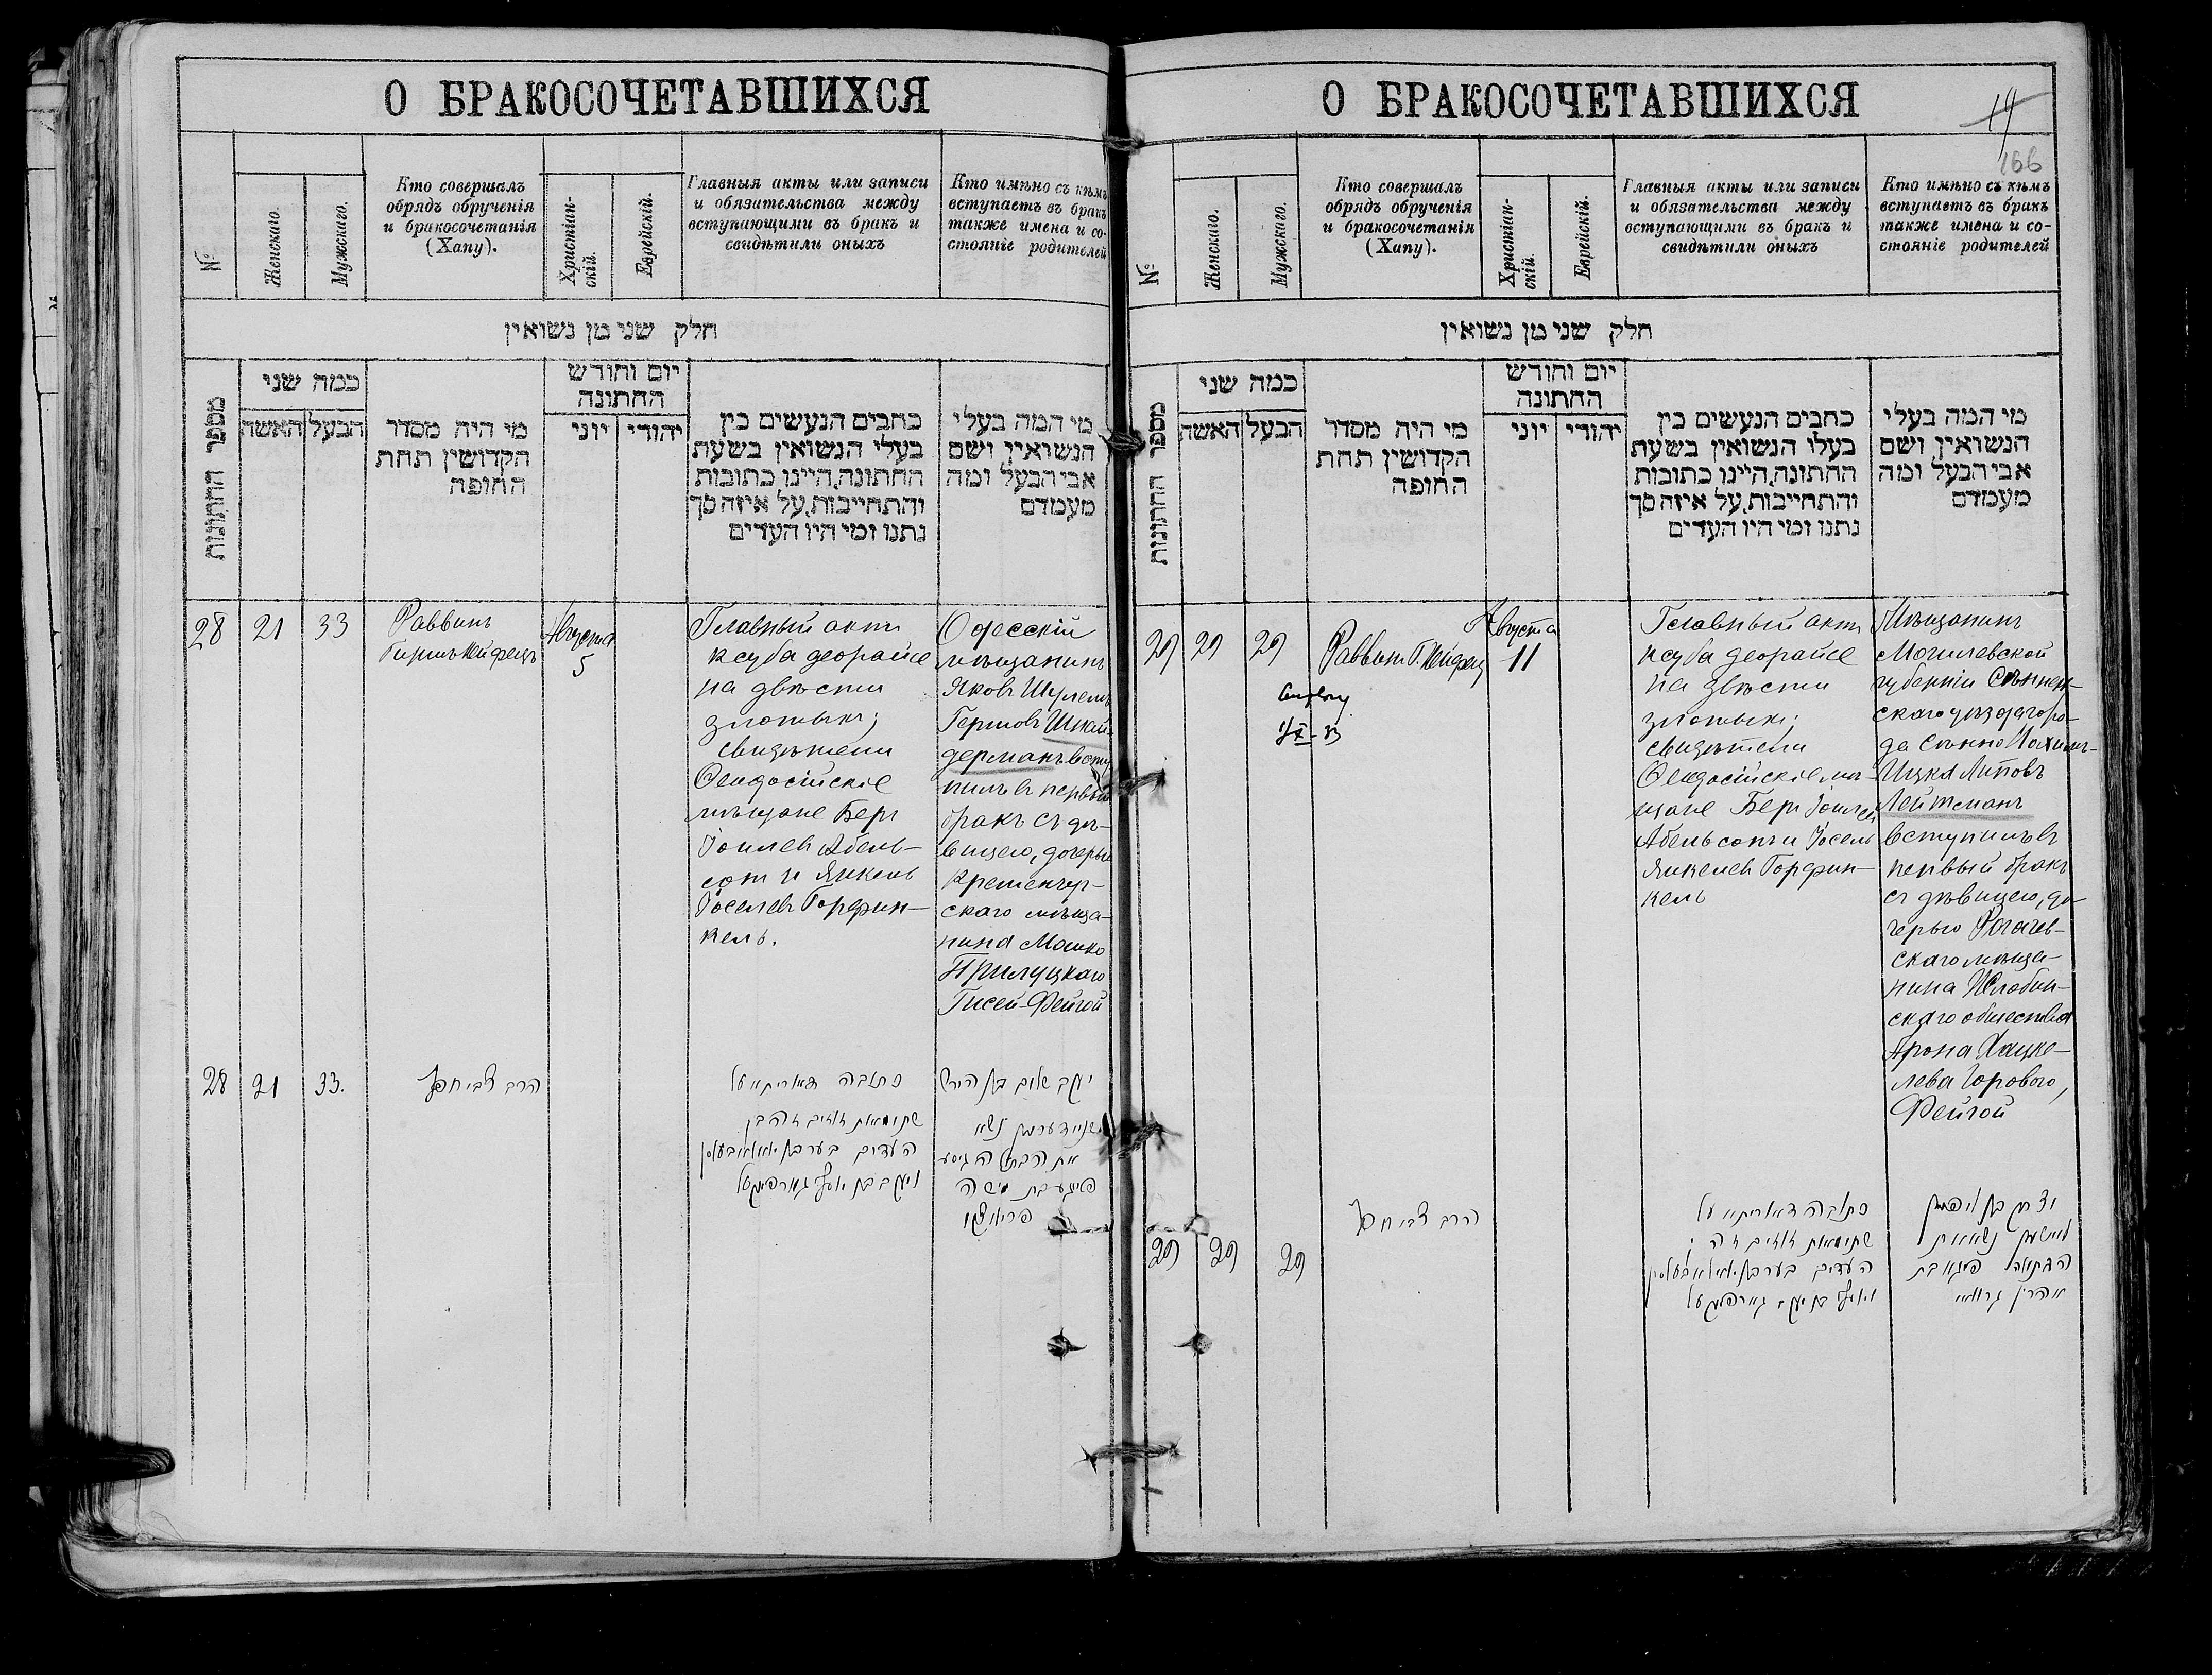 О БРАКОСОЧЕТАВШИХСЯ
№
Женскаго.
Мужскаго.
Кто совершалъ
обрядъ обрученія
и бракосочетанія
(Хапу).
Христіан-
скій.
Еврейскій.
Главныя акты или записи
и обязательства между
вступающими въ бракъ и
свидѣтили оныхъ
Кто имѣно съ кѣмъ
вступаетъ въ бракъ
также имена и со-
стояніе родителей
חלק שני מן נשואין
מספר החתונות
כמה שני
האשה
הבעל
מי היה מסדר
הקדושין תחת
החופה
יום וחודש
החתונה
יוני
יהודי
כתבים הנעשים בין
בעלי הנשואין בשעת
החתונה, היינו כתובות
והתחייבות, על איזה סך
נתנו ומי היו העדים
מי המה בעלי
הנשואין ושם
אבי הבעל ומה
מעמדם
28
21
33
Раввинъ
Гиршъ Хейфецъ
Августа
5
Главный актъ
ксуба деорайсе
на двѣсти
злотыхъ;
свидѣтели
Ѳеодосійскіе
мѣщане Беръ
Іоилевъ Абель-
сонъ и Янкель
Іоселевъ Горфин-
кель.
Одесскій
мѣщанинъ
Яковъ Шулемъ
Гершовъ Шнай-
дерманъ всту-
пилъ въ первый
бракъ съ дѣ-
вицею, дочерью
Кременчуг-
скаго мѣща-
нина Мошко
Прилуцкаго
Гисей-Фейгой
28
21
33.
הרב צבי חפץ
כתובה דאוריתא על
העדים
О БРАКОСОЧЕТАВШИХСЯ
14
166
№
Женскаго.
Мужскаго.
Кто совершалъ
обрядъ обрученія
и бракосочетанія
(Хапу).
Христіан-
скій.
Еврейскій.
Главныя акты или записи
и обязательства между
вступающими въ бракъ и
свидѣтили оныхъ
Кто имѣно съ кѣмъ
вступаетъ въ бракъ
также имена и со-
стояніе родителей
חלק שני מן נשואין
מספר החתונות
כמה שני
האשה
הבעל
מי היה מסדר
הקדושין תחת
החופה
יום וחודש
החתונה
יוני
יהודי
כתבים הנעשים בין
בעלי הנשואין בשעת
החתונה, היינו כתובות
והתחייבות, על איזה סך
נתנו ומי היו העדים
מי המה בעלי
הנשואין ושם
אבי הבעל ומה
מעמדם
29
29
29
Раввинъ Г. Хейфец
Августа
11
Главный актъ
ксуба деорайсе
на двѣсти
злотыхъ;
свидѣтели
Ѳеодосійскіе мѣ-
щане Беръ Іоилевъ
Абельсонъ и Іосель
Янкелевъ Горфин-
кель
Мѣщанинъ
Могилевской
губерніи Сѣннен-
скаго уѣзда горо-
да Сѣнно
Ицка Липовъ
Лейтманъ
вступилъ въ
первый бракъ
съ дѣвицею, до-
черью Рогачев-
скаго мѣща-
нина Жлобин-
скаго общества
Арона Хацке-
лева Горового,
Фейгой
29
29
29
הרב צבי חפץ
כתובה דאוריתא על
העדים